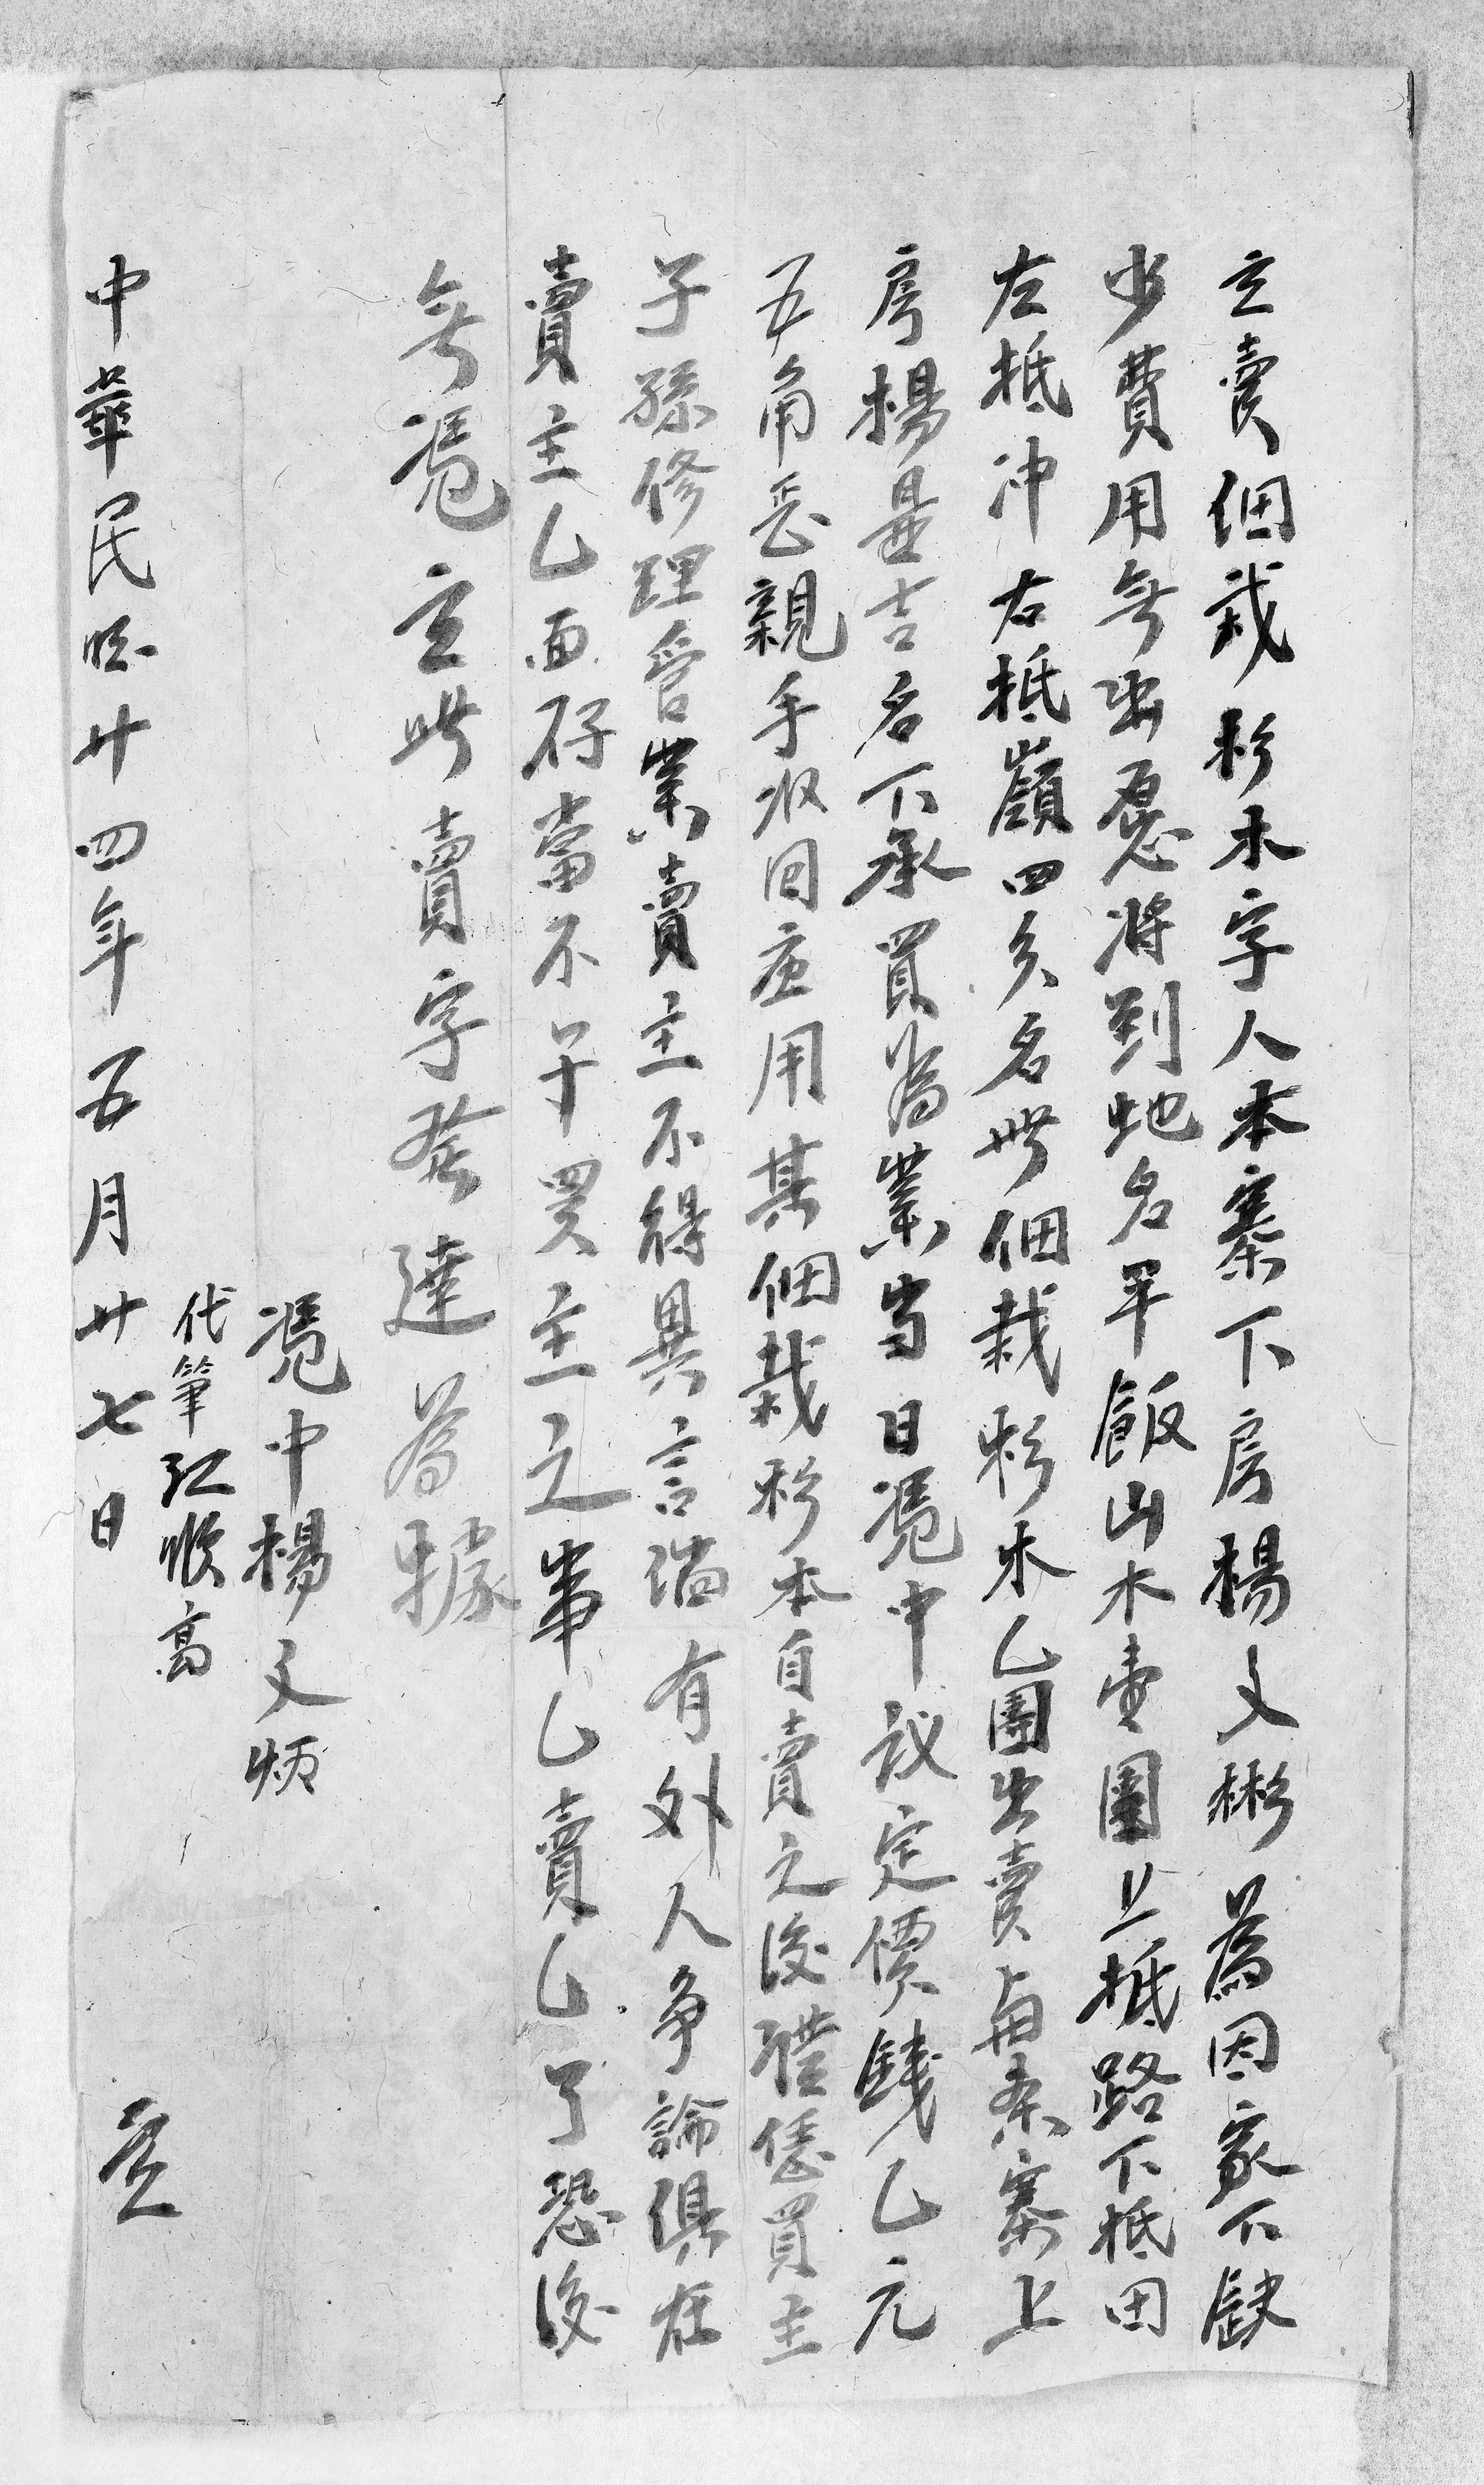 立賣佃栽杉木字人本寨下房楊文彬為因家下缺
少費用無出愿將到地名平飯山木壹團上抵路下抵田
左抵冲右抵嶺四爻名此佃栽杉木乙團出賣與本寨上
房楊昌吉名下承買為業当日凴中议定價錢乙元
五角正親手收回应用其佃栽杉木自賣之後禮恁買主
子孫修理管業賣主不得異言倘有外人争論俱在
賣主乙面存當不干買主之事乙賣乙了恐後
無凴立此賣字發達為據
凴中楊文炳
代筆江順高
中華民國廿四年五月廿七日 立